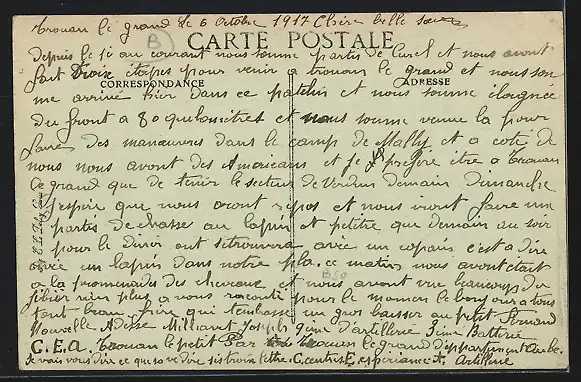 trouan le grand le 6 octobre 1917 Chère belle soeur
CARTE POSTALE
depuis le 1e au courant nous somme partis de Curel et nous avont
fait trois étapes pour venir a trouan le grand et nous som
CORRESPONDANCE
ADRESSE
me arrivé hier dans ce patelin et nous somme éloignée
du front a 80 quilomètres et nous somme venue la pour
faire des manœuvres dans le camp de Mailly et a coté de
nous nous avont des Americans et je préfère être a trouan
le grand que de tenir le secteur de Verdun demain Dimanche
j'espère que nous auront repos et nous iront faire une
partis de chasse au lapin et petitre que demain au soir
pour le diner ont setrouvera avec un copain c'est a dire
avec un lapin dans notre pla. ce matin nous avont était
a la promenades des chevaux et nous avont vue beaucoup du
gibier rien plus a vous raconté pour le momen le bonjour a vous
tout beau frère qui t'embrasse un gros baisser au petit Fernand
Nouvelle Adresse Joseph 9eme d'artillerie 3eme Batterie
C.E.A. trouan le petit Par trouan le grand departement Aube.
je vais vous dire ce que sa ve dire sis trois lettre. C. centre E. esperiance A. Artillerie
B
B50